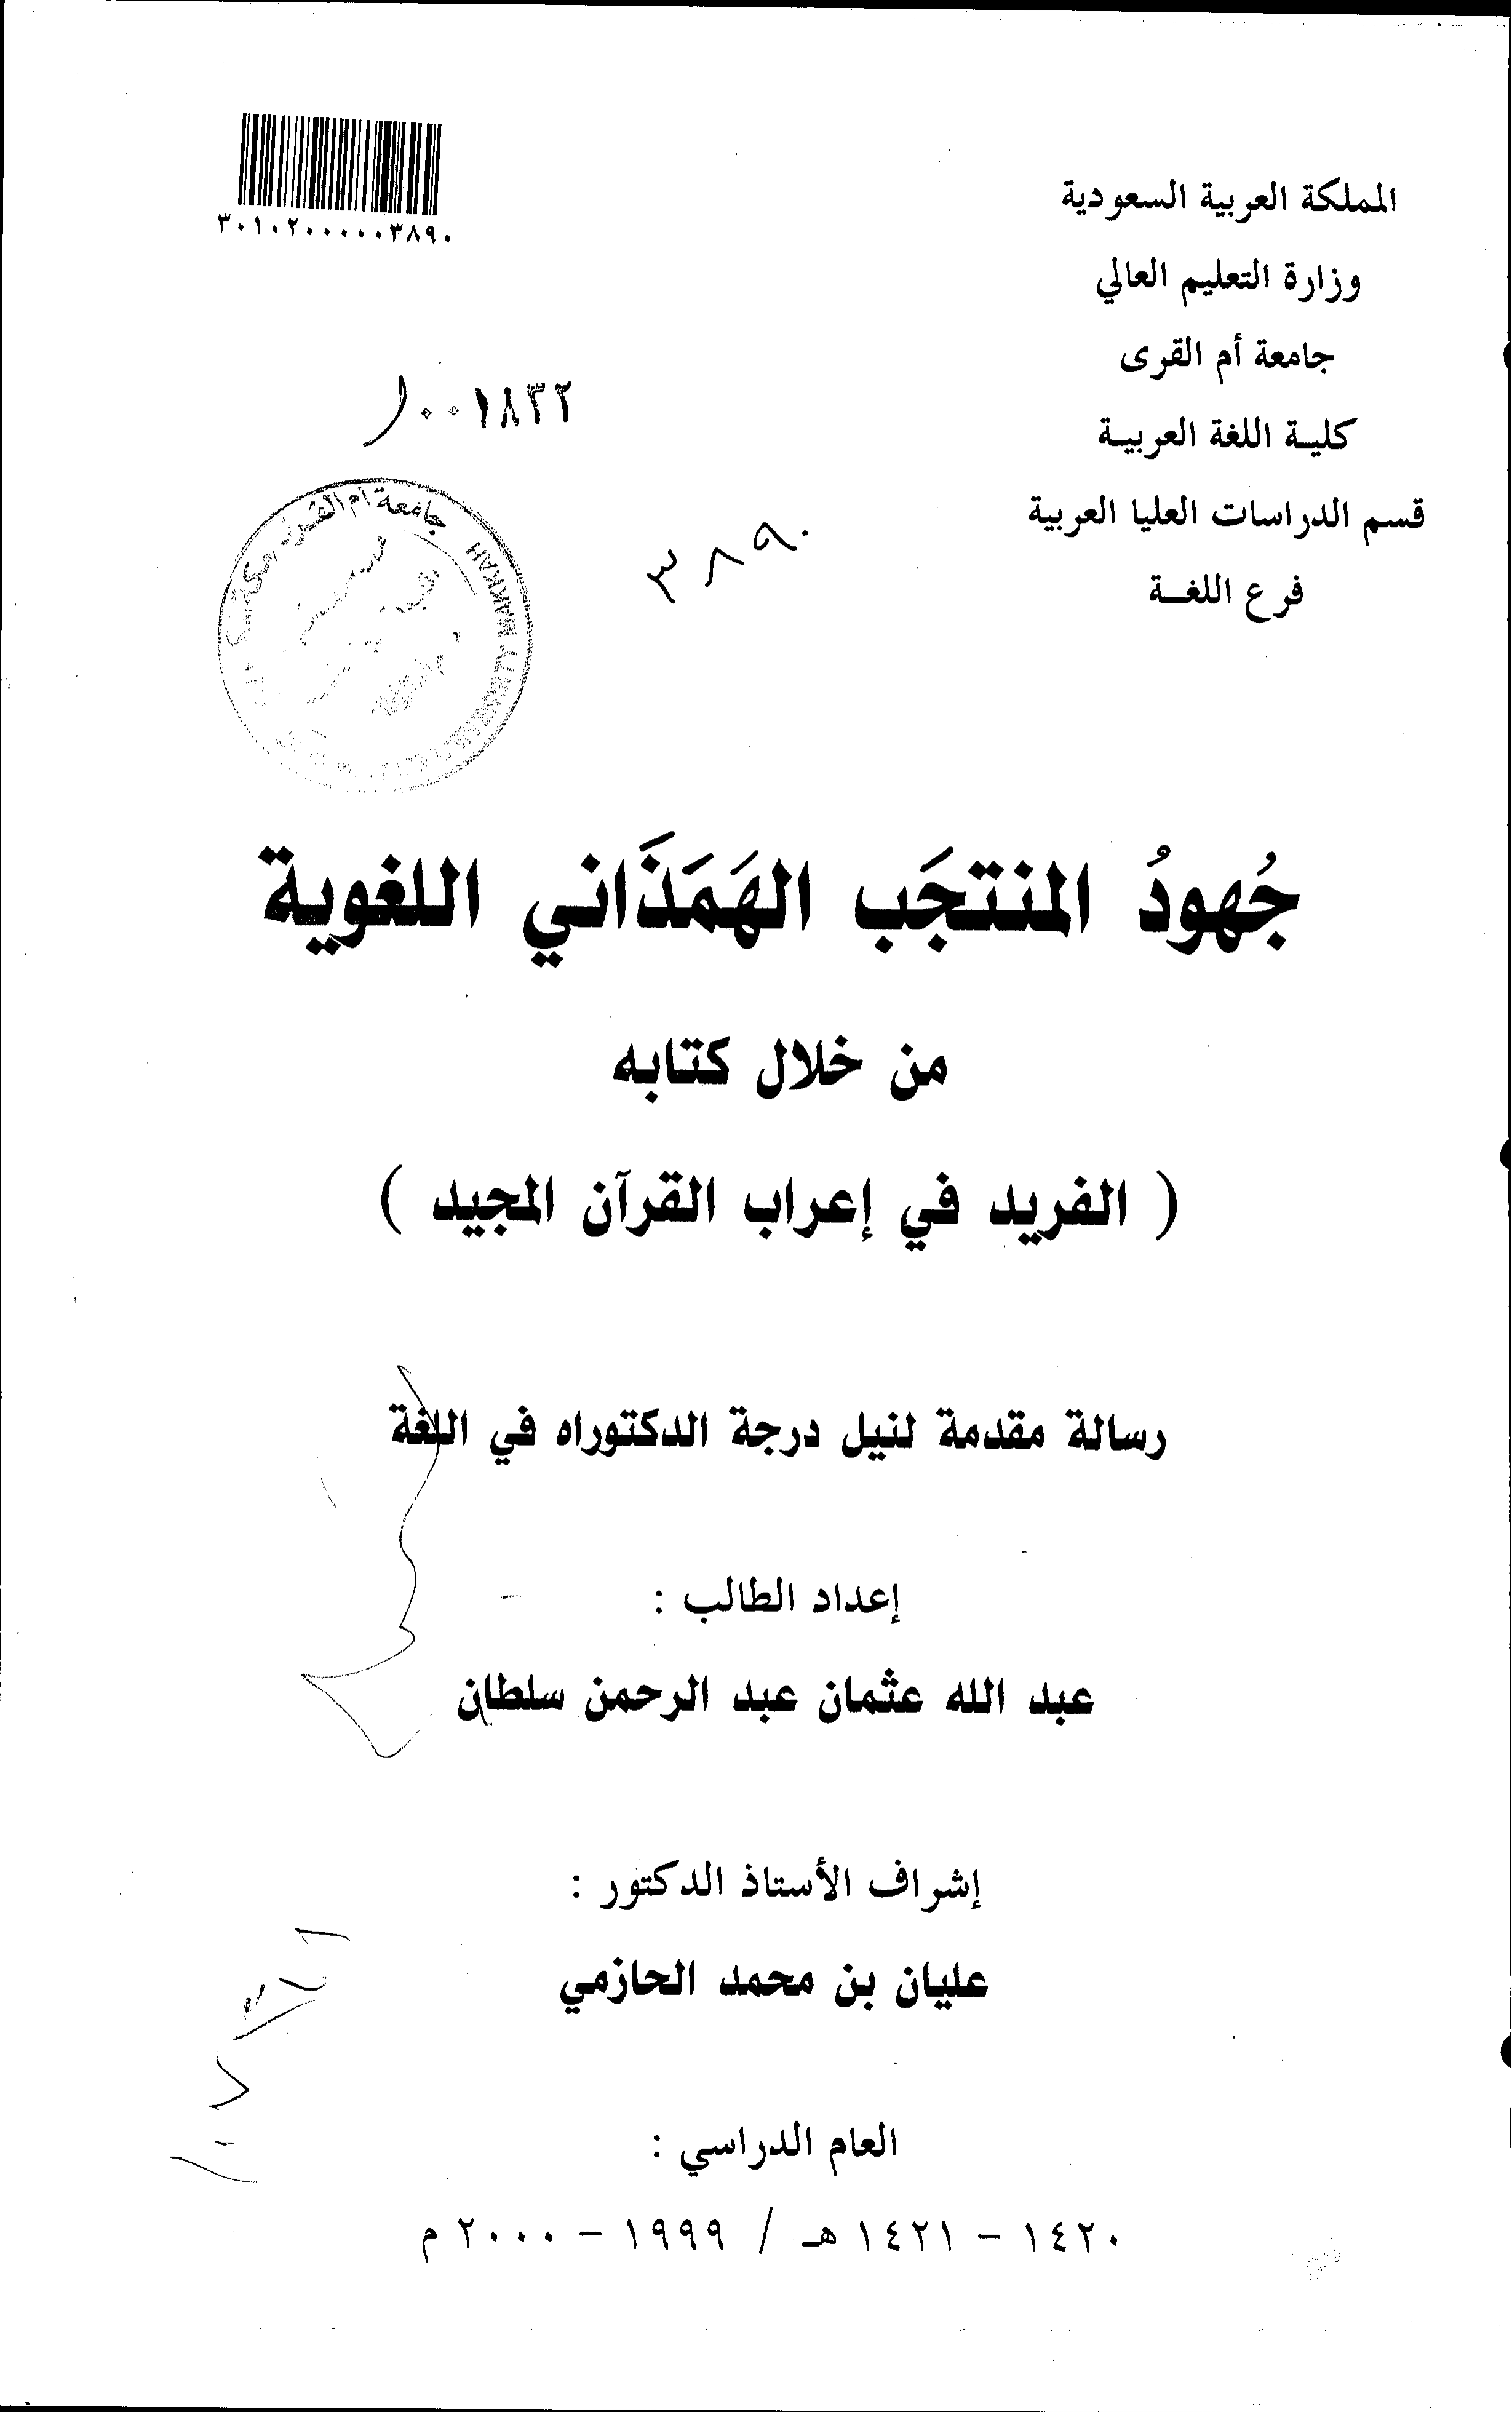 المملكة العربية السعودية
وزارة التعليم العالي
جامعة أم القرى
كليـة اللغة العربيـة
قسم الدراسات العليا العربية
فرع اللغـــة
٣٠١٠٢٠٠٠٠٠٣٨٩٠
٠٠١٨٣٢
٣٨٩٠
جامعة أم القرى
MAKKAH
جُهودُ المنتجَب الهَمَذَاني اللغوية
من خلال كتابه
( الفريد في إعراب القرآن المجيد )
رسالة مقدمة لنيل درجة الدكتوراه في اللغة
إعداد الطالب :
عبد الله عثمان عبد الرحمن سلطان
إشراف الأستاذ الدكتور :
عليان بن محمد الحازمي
العام الدراسي :
١٤٢٠ - ١٤٢١ هـ / ١٩٩٩ - ٢٠٠٠ م